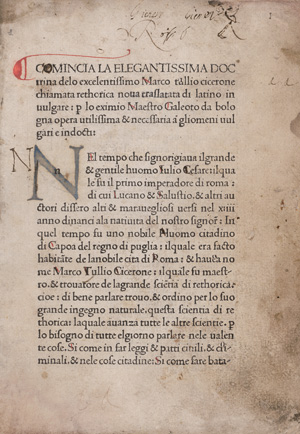 COMINCIA LA ELEGANTISSIMA DOC
trina delo excelentissimo Marco tullio cicerone
chiamata rethorica noua traslatata di latino in
uulgare: p lo eximio Maestro Galeoto da bolo
gna opera utilissima & necessaria a gliomeni uul
gari e indocti:
N
n
NEl tempo che signorigiaua ilgrande
& gentile huomo Iulio Cesare: ilqua
le fu il primo imperadore di roma:
di cui Lucano & Salustio, & altri au
ctori dissero alti & marauegliosi uersi nel xiiii
anno dinanci ala natiuita del nostro signor: In
quel tempo fu uno nobile Huomo citadino
di Capoa del regno di puglia: ilquale era facto
habitate de lanobile cita di Roma: & hauea no
me Marco Tullio Cicerone: ilquale fu maest
ro. & trouatore de lagrande sciētia di rethorica
cioe: di bene parlare trouo, & ordino per lo suo
grande ingegno naturale. questa scientia di re
thorica: laquale auanza tutte le altre scientie. p
lo bisogno di tutte elgiorno parlare nele ualen
te cose. Si come in far leggi & patti ciuili. & cri
minali. & nele cose citadine: Si come fare bata-